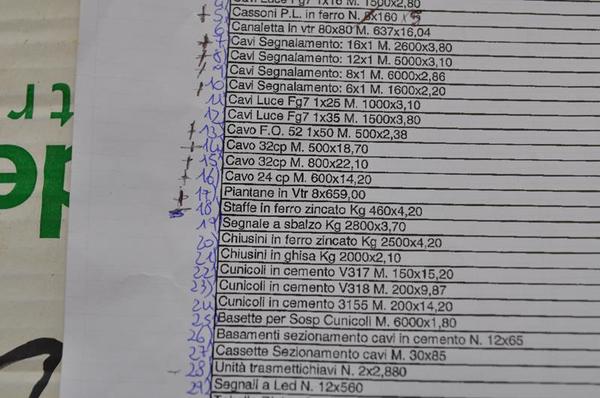 Cavi Luce Fg7 1x16 M. 1500x2,80
5 Cassoni P.L. in ferro N. 8x160 x5
6 Canaletta in vtr 80x80 M. 637x16,04
7 Cavi Segnalamento: 16x1 M. 2600x3,80
8 Cavi Segnalamento: 12x1 M. 5000x3,10
9 Cavi Segnalamento: 8x1 M. 6000x2,86
10 Cavi Segnalamento: 6x1 M. 1600x2,20
11 Cavi Luce Fg7 1x25 M. 1000x3,10
12 Cavi Luce Fg7 1x35 M. 1500x3,80
13 Cavo F.O. 52 1x50 M. 500x2,38
14 Cavo 32cp M. 500x18,70
15 Cavo 32cp M. 800x22,10
16 Cavo 24 cp M. 600x14,20
17 Piantane in Vtr 8x659,00
18 Staffe in ferro zincato Kg 460x4,20
19 Segnale a sbalzo Kg 2800x3,70
20 Chiusini in ferro zincato Kg 2500x4,20
21 Chiusini in ghisa Kg 2000x2,10
22 Cunicoli in cemento V317 M. 150x15,20
23 Cunicoli in cemento V318 M. 200x9,87
24 Cunicoli in cemento 3155 M. 200x14,20
25 Basette per Sosp Cunicoli M. 6000x1,80
26 Basamenti sezionamento cavi in cemento N. 12x65
27 Cassette Sezionamento cavi M. 30x85
28 Unità trasmettichiavi N. 2x2,880
29 Segnali a Led N. 12x560
tr
de